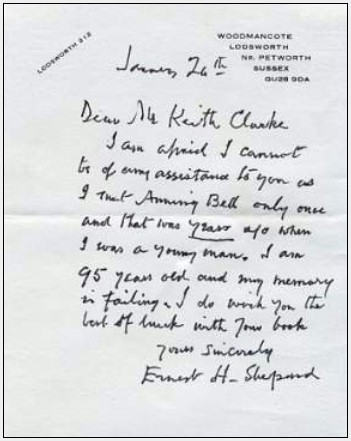 LODSWORTH 212
WOODMANCOTE
LODSWORTH
NR. PETWORTH
SUSSEX
GU28 9DA
January 26th
Dear Mr Keith Clarke
I am afraid I cannot
be of any assistance to you as
I met Anning Bell only once
and that was years ago when
I was a young man. I am
95 years old and my memory
is failing. I do wish you the
best of luck with your book
Yours sincerely
Ernest H. Shepard